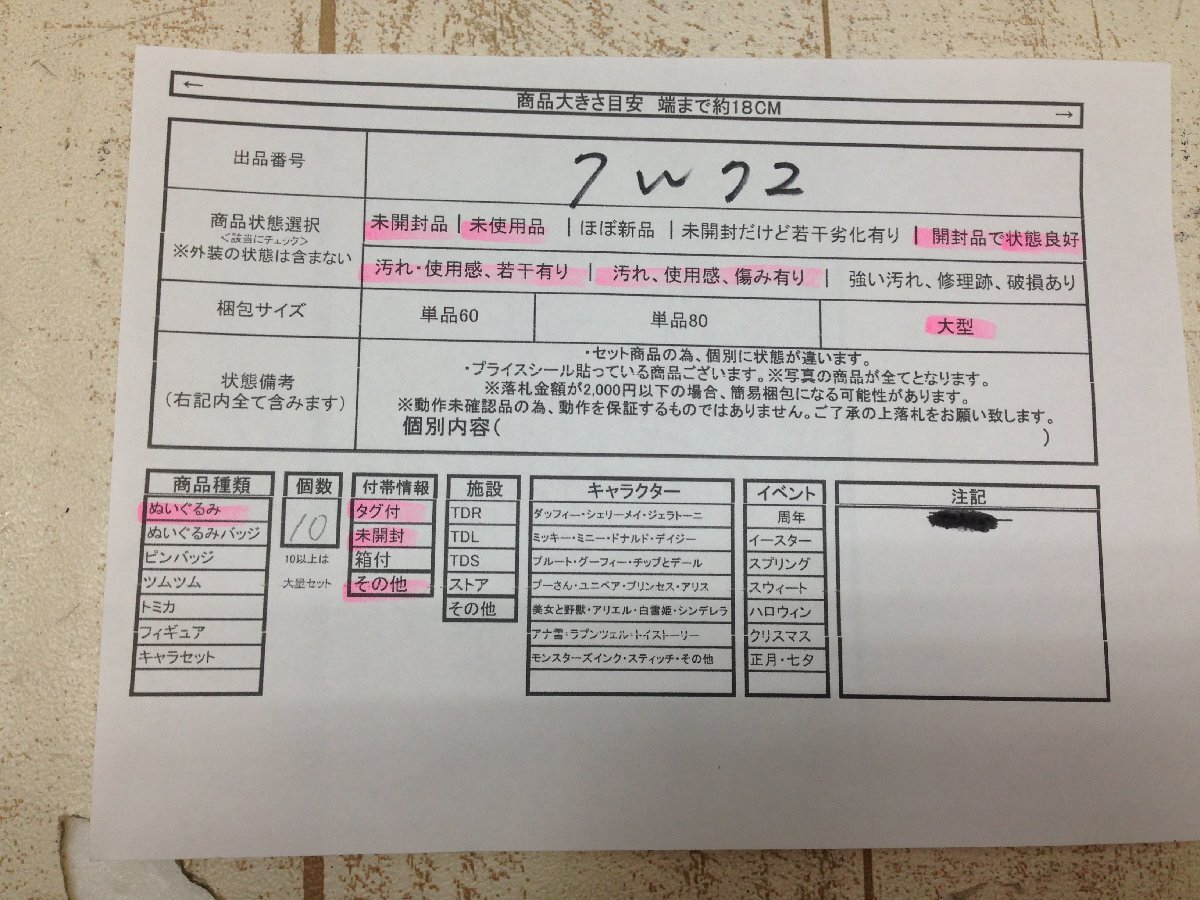 ← 商品大きさ目安 端まで約18CM →
出品番号 7W72
商品状態選択
<該当にチェック>
※外装の状態は含まない
未開封品 | 未使用品 | ほぼ新品 | 未開封だけど若干劣化有り | 開封品で状態良好
汚れ・使用感、若干有り | 汚れ、使用感、傷み有り | 強い汚れ、修理跡、破損あり
梱包サイズ 単品60 単品80 大型
状態備考
(右記内全て含みます)
・セット商品の為、個別に状態が違います。
・プライスシール貼っている商品ございます。※写真の商品が全てとなります。
※落札金額が2,000円以下の場合、簡易梱包になる可能性があります。
※動作未確認品の為、動作を保証するものではありません。ご了承の上落札をお願い致します。
個別内容( )
商品種類
ぬいぐるみ
ぬいぐるみバッジ
ピンバッジ
ツムツム
トミカ
フィギュア
キャラセット
個数
10
10以上は
大量セット
付帯情報
タグ付
未開封
箱付
その他
施設
TDR
TDL
TDS
ストア
その他
キャラクター
ダッフィー・シェリーメイ・ジェラトーニ
ミッキー・ミニー・ドナルド・デイジー
プルート・グーフィー・チップとデール
プーさん・ユニベア・プリンセス・アリス
美女と野獣・アリエル・白雪姫・シンデレラ
アナ雪・ラプンツェル・トイストーリー
モンスターズインク・スティッチ・その他
イベント
周年
イースター
スプリング
スウィート
ハロウィン
クリスマス
正月・七夕
注記